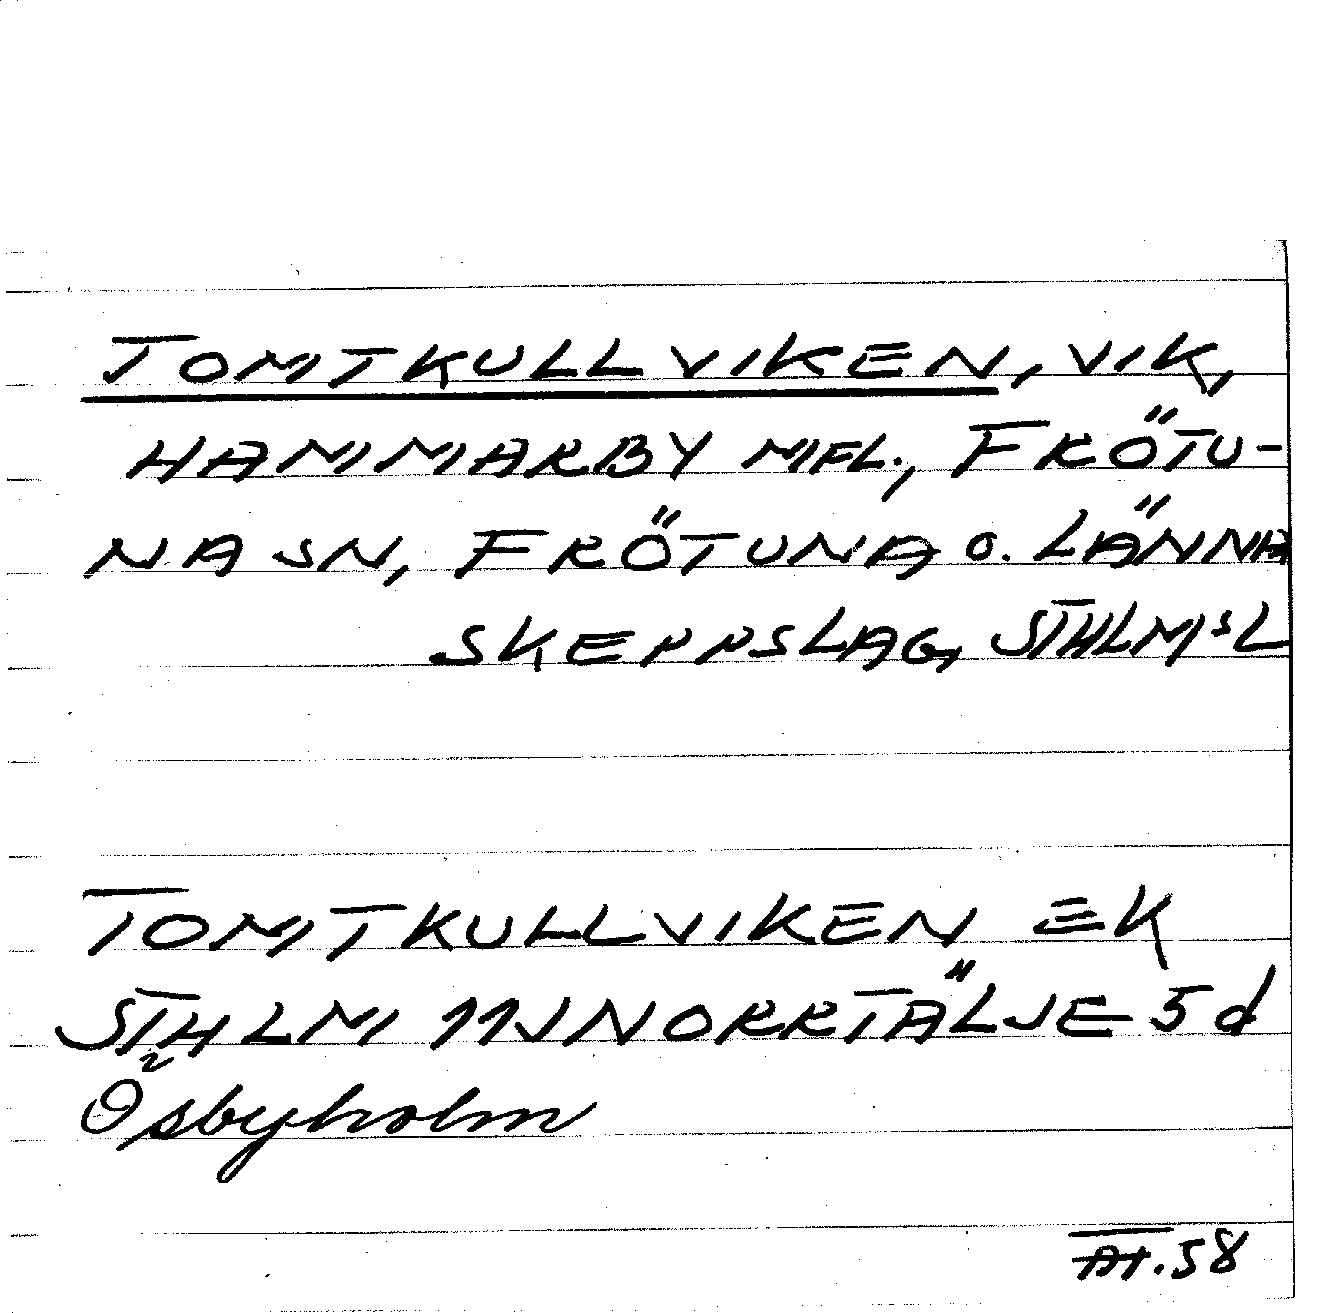 TOMTKULLVIKEN, VIK,
HAMMARBY MFL., FRÖTU-
NA SN, FRÖTUNA O. LÄNNA
SKEPPSLAG, STHLMS L
TOMTKULLVIKEN EK
STHLM 11J NORRTÄLJE 5d
Ösbyholm
AH.58